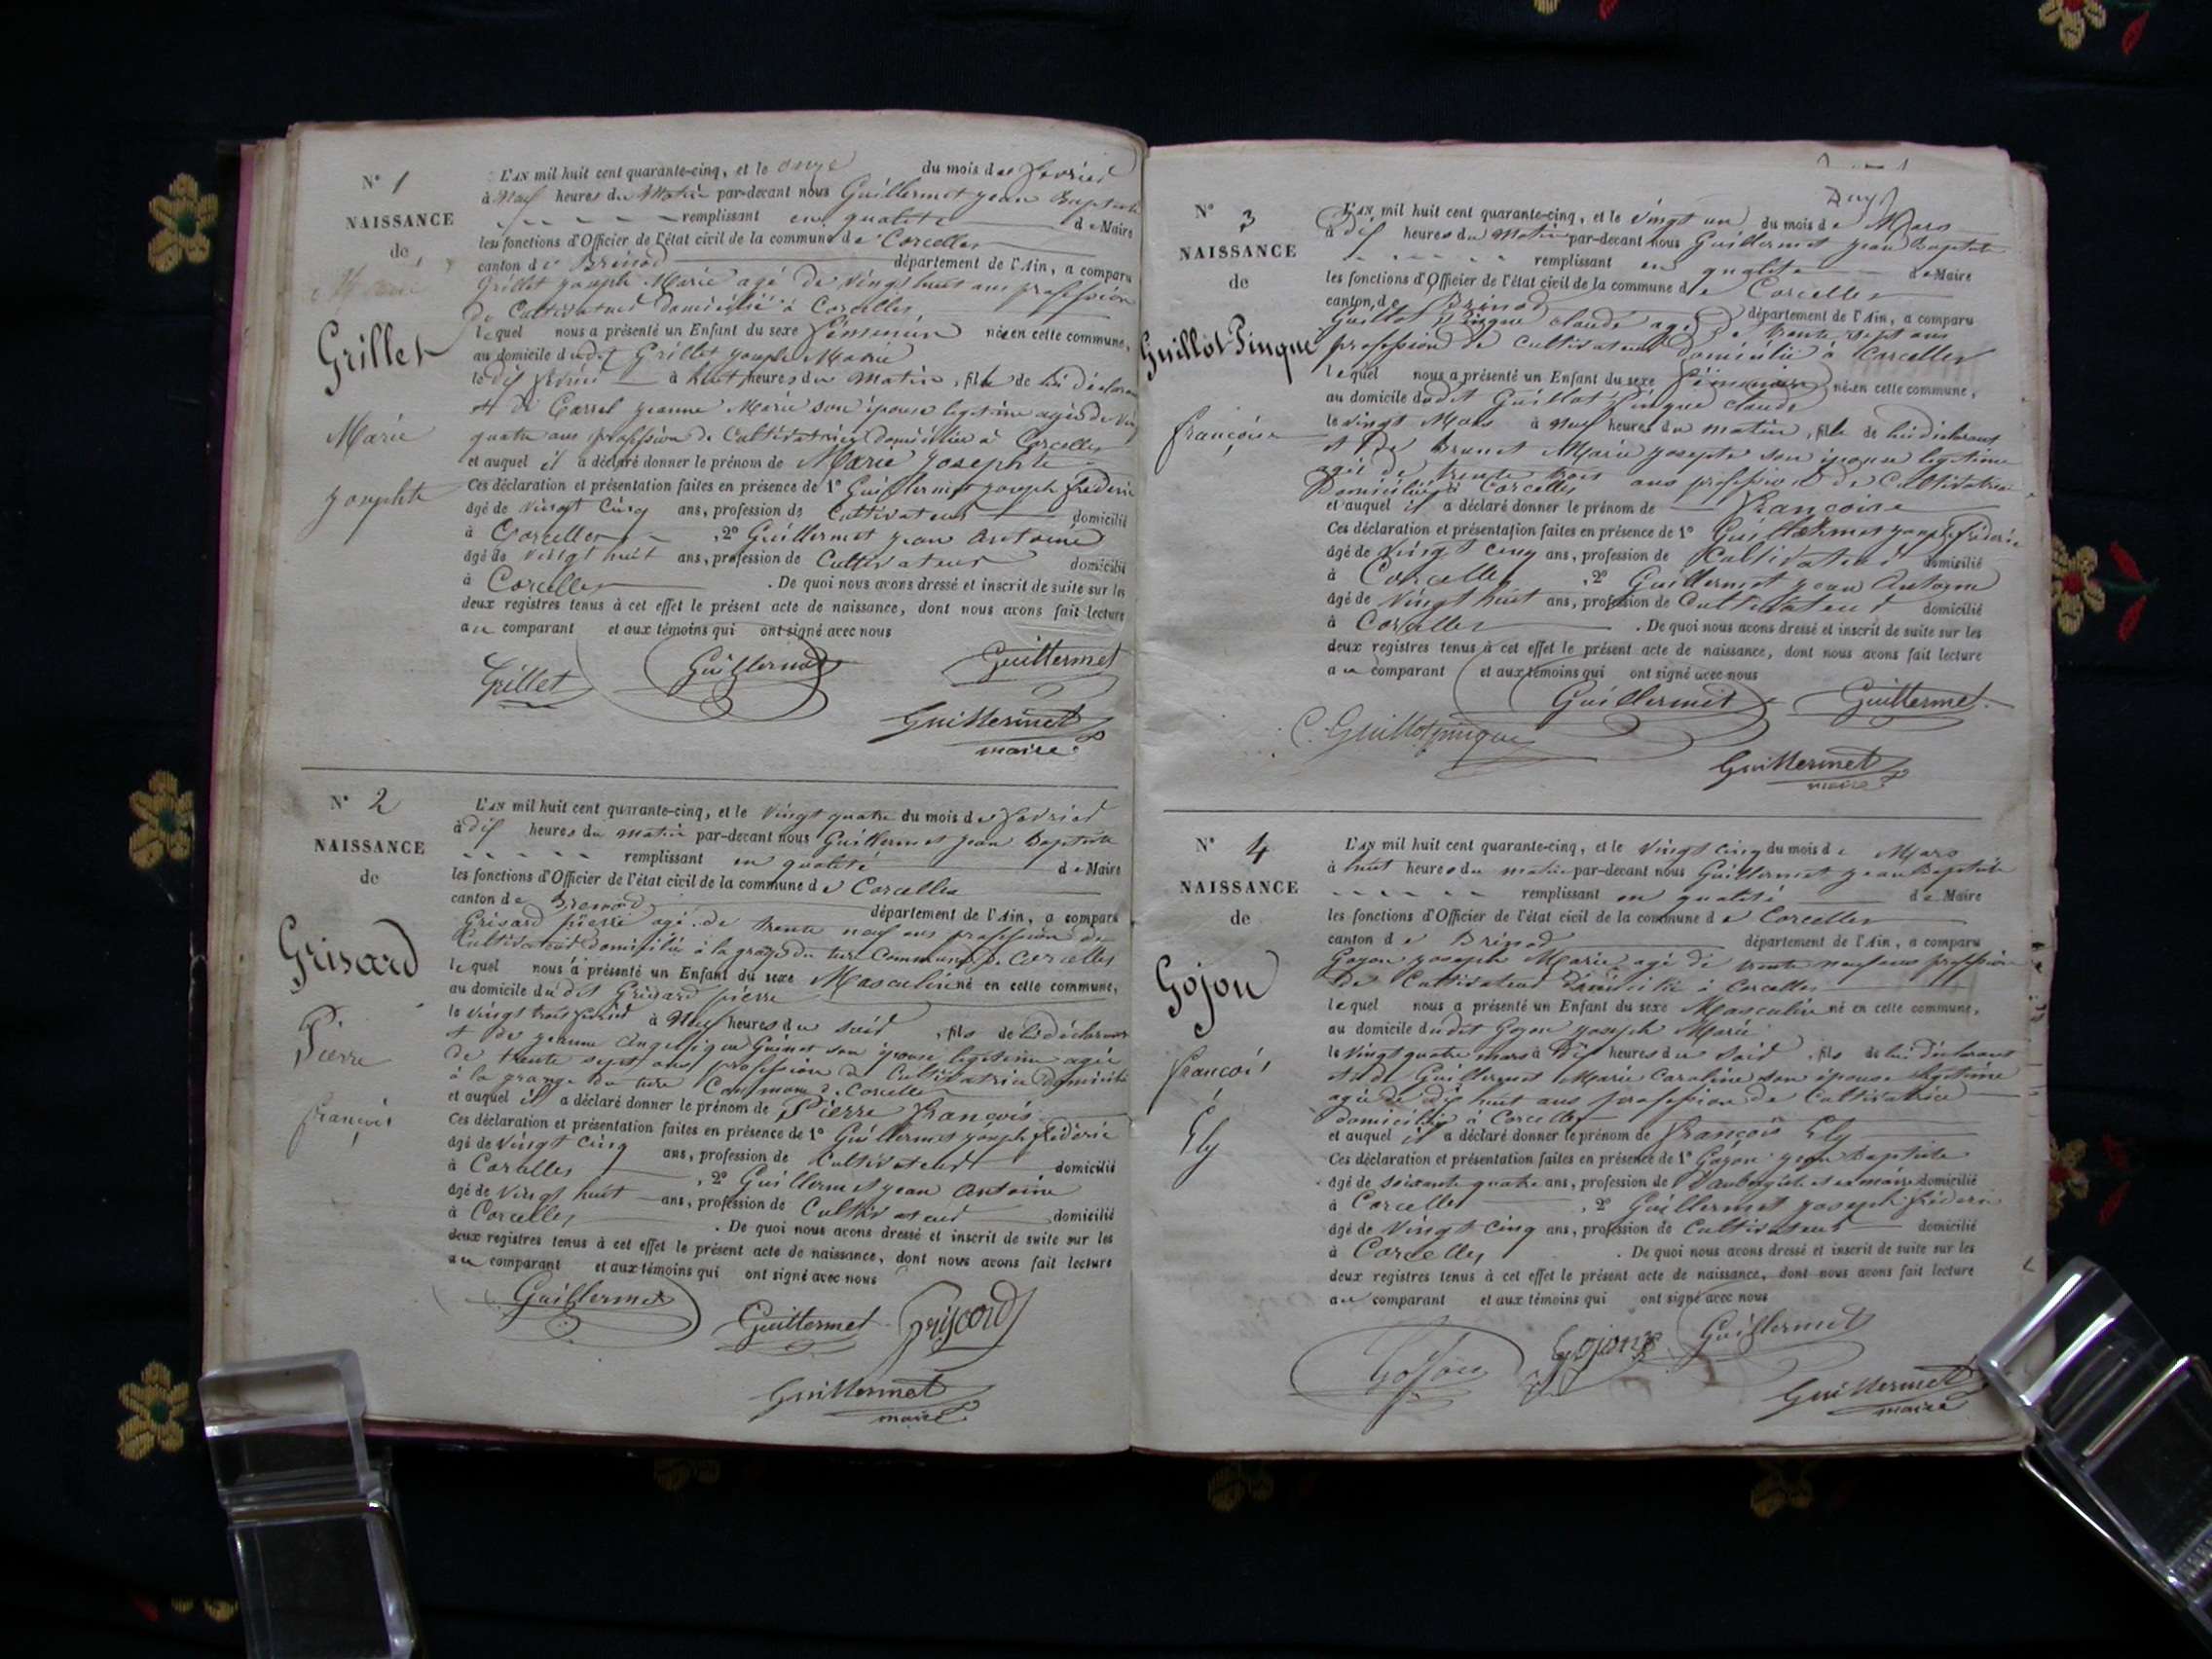 N° 1
NAISSANCE
de
Grillet
Marie
Josephte
L'AN mil huit cent quarante-cinq, et le onze du mois de fevrier
à Neuf heures du Matin par-devant nous Guillermet jean Baptiste
remplissant en qualité de Maire
les fonctions d'Officier de l'état civil de la commune de Corcelles
canton de Brénod département de l'Ain, a comparu
Grillet joseph Marie agé de vingt huit ans profession
de Cultivateur domicilié à Corcelles
lequel nous a présenté un Enfant du sexe féminin née en cette commune,
au domicile dudit Grillet joseph Marie
le dix fevrier à huit heures du matin, fille de lui déclarant
et de Carrel jeanne Marie son épouse legitime agée de vingt
quatre ans profession de Cultivatrice domiciliée à Corcelles
et auquel il a déclaré donner le prénom de Marie josephte
Ces déclaration et présentation faites en présence de 1° Guillermet joseph frédéric
âgé de vingt cinq ans, profession de Cultivateur domicilié
à Corcelles, 2° Guillermet jean Antoine
âgé de vingt huit ans, profession de Cultivateur domicilié
à Corcelles. De quoi nous avons dressé et inscrit de suite sur les
deux registres tenus à cet effet le présent acte de naissance, dont nous avons fait lecture
au comparant et aux témoins qui ont signé avec nous
Grillet Guillermet Guillermet
Guillermet
maire
N° 2
NAISSANCE
de
Grisard
Pierre
françois
L'AN mil huit cent quarante-cinq, et le vingt quatre du mois de fevrier
à dix heures du matin par-devant nous Guillermet jean Baptiste
remplissant en qualité de Maire
les fonctions d'Officier de l'état civil de la commune de Corcelles
canton de Brenod département de l'Ain, a comparu
Grisard pierre agé de trente neuf ans profession de
Cultivateur domicilié à la grange du ture Commune de Corcelles
lequel nous a présenté un Enfant du sexe Masculin né en cette commune,
au domicile dudit Grisard pierre
le vingt trois fevrier à Neuf heures du soir, fils de lui déclarant
et de jeanne Angelique Guinet son épouse legitime agée
de trente sept ans profession de Cultivatrice domiciliée
à la grange du ture Commune de Corcelles
et auquel il a déclaré donner le prénom de Pierre François
Ces déclaration et présentation faites en présence de 1° Guillermet joseph frédéric
âgé de vingt cinq ans, profession de Cultivateur domicilié
à Corcelles, 2° Guillermet jean Antoine
âgé de vingt huit ans, profession de Cultivateur domicilié
à Corcelles. De quoi nous avons dressé et inscrit de suite sur les
deux registres tenus à cet effet le présent acte de naissance, dont nous avons fait lecture
au comparant et aux témoins qui ont signé avec nous
Guillermet Guillermet Grisard
Guillermet
maire
N° 3
NAISSANCE
de
Guillot Pinque
françoise
L'AN mil huit cent quarante-cinq, et le vingt un du mois de Mars
à dix heures du Matin par-devant nous Guillermet jean Baptiste
remplissant en qualité de Maire
les fonctions d'Officier de l'état civil de la commune de Corcelles
canton de Brénod département de l'Ain, a comparu
Guillot Pinque claude agé de trente sept ans
profession de cultivateur domicilié à Corcelles
lequel nous a présenté un Enfant du sexe féminin née en cette commune,
au domicile dudit Guillot Pinque claude
le vingt Mars à neuf heures du matin, fille de lui déclarant
et de Brunet Marie josepte son épouse legitime
agée de trente trois ans profession de Cultivatrice
Domiciliée à Corcelles
et auquel il a déclaré donner le prénom de Françoise
Ces déclaration et présentation faites en présence de 1° Guillermet joseph fréderic
âgé de vingt cinq ans, profession de Cultivateur domicilié
à Corcelles, 2° Guillermet jean Antoine
âgé de vingt huit ans, profession de Cultivateur domicilié
à Corcelles. De quoi nous avons dressé et inscrit de suite sur les
deux registres tenus à cet effet le présent acte de naissance, dont nous avons fait lecture
au comparant et aux témoins qui ont signé avec nous
Guillermet Guillermet
C. Guillotpinque
Guillermet
maire
N° 4
NAISSANCE
de
Gojon
françois
Ely
L'AN mil huit cent quarante-cinq, et le vingt cinq du mois de Mars
à huit heures du matin par-devant nous Guillermet jean Baptiste
remplissant en qualité de Maire
les fonctions d'Officier de l'état civil de la commune de Corcelles
canton de Brénod département de l'Ain, a comparu
Gojon joseph Marie agé de trente neuf ans profession
De Cultivateur domicilié à Corcelles
lequel nous a présenté un Enfant du sexe Masculin né en cette commune,
au domicile dudit Gojon joseph Marie
le vingt quatre mars à dix heures du soir, fils de lui déclarant
et de Guillermet Marie Caroline son épouse legitime
agée de dix huit ans profession de Cultivatrice
domiciliée à Corcelles
et auquel il a déclaré donner le prénom de françois Ely
Ces déclaration et présentation faites en présence de 1° Gojon jean Baptiste
âgé de soixante quatre ans, profession de domicilié
à Corcelles, 2° Guillermet joseph fréderic
âgé de vingt cinq ans, profession de Cultivateur domicilié
à Corcelles. De quoi nous avons dressé et inscrit de suite sur les
deux registres tenus à cet effet le présent acte de naissance, dont nous avons fait lecture
au comparant et aux témoins qui ont signé avec nous
Gojon Gojon Guillermet
Guillermet
maire